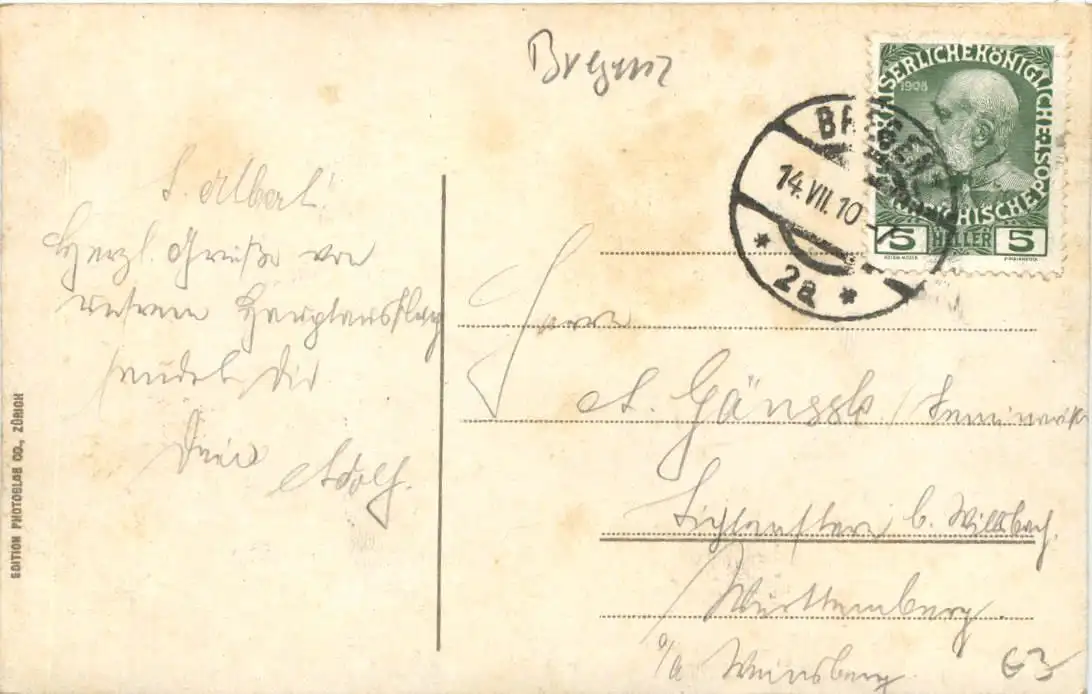 Bregenz
KAISERLICHEKÖNIGLICHEÖSTERREICHISCHEPOST
1908
5 HELLER 5
BREGENZ
14.VII.10
* 2a *
L. Albert!
Herzl. Grüße von
unserem Hauptausflug
sendet Dir
Dein Adolf.
Herrn
A. Gänssle, Seminarist
Lichtenstern b. Willsbach
Württemberg.
o/a Weinsberg
63
EDITION PHOTOGLOB CO., ZÜRICH